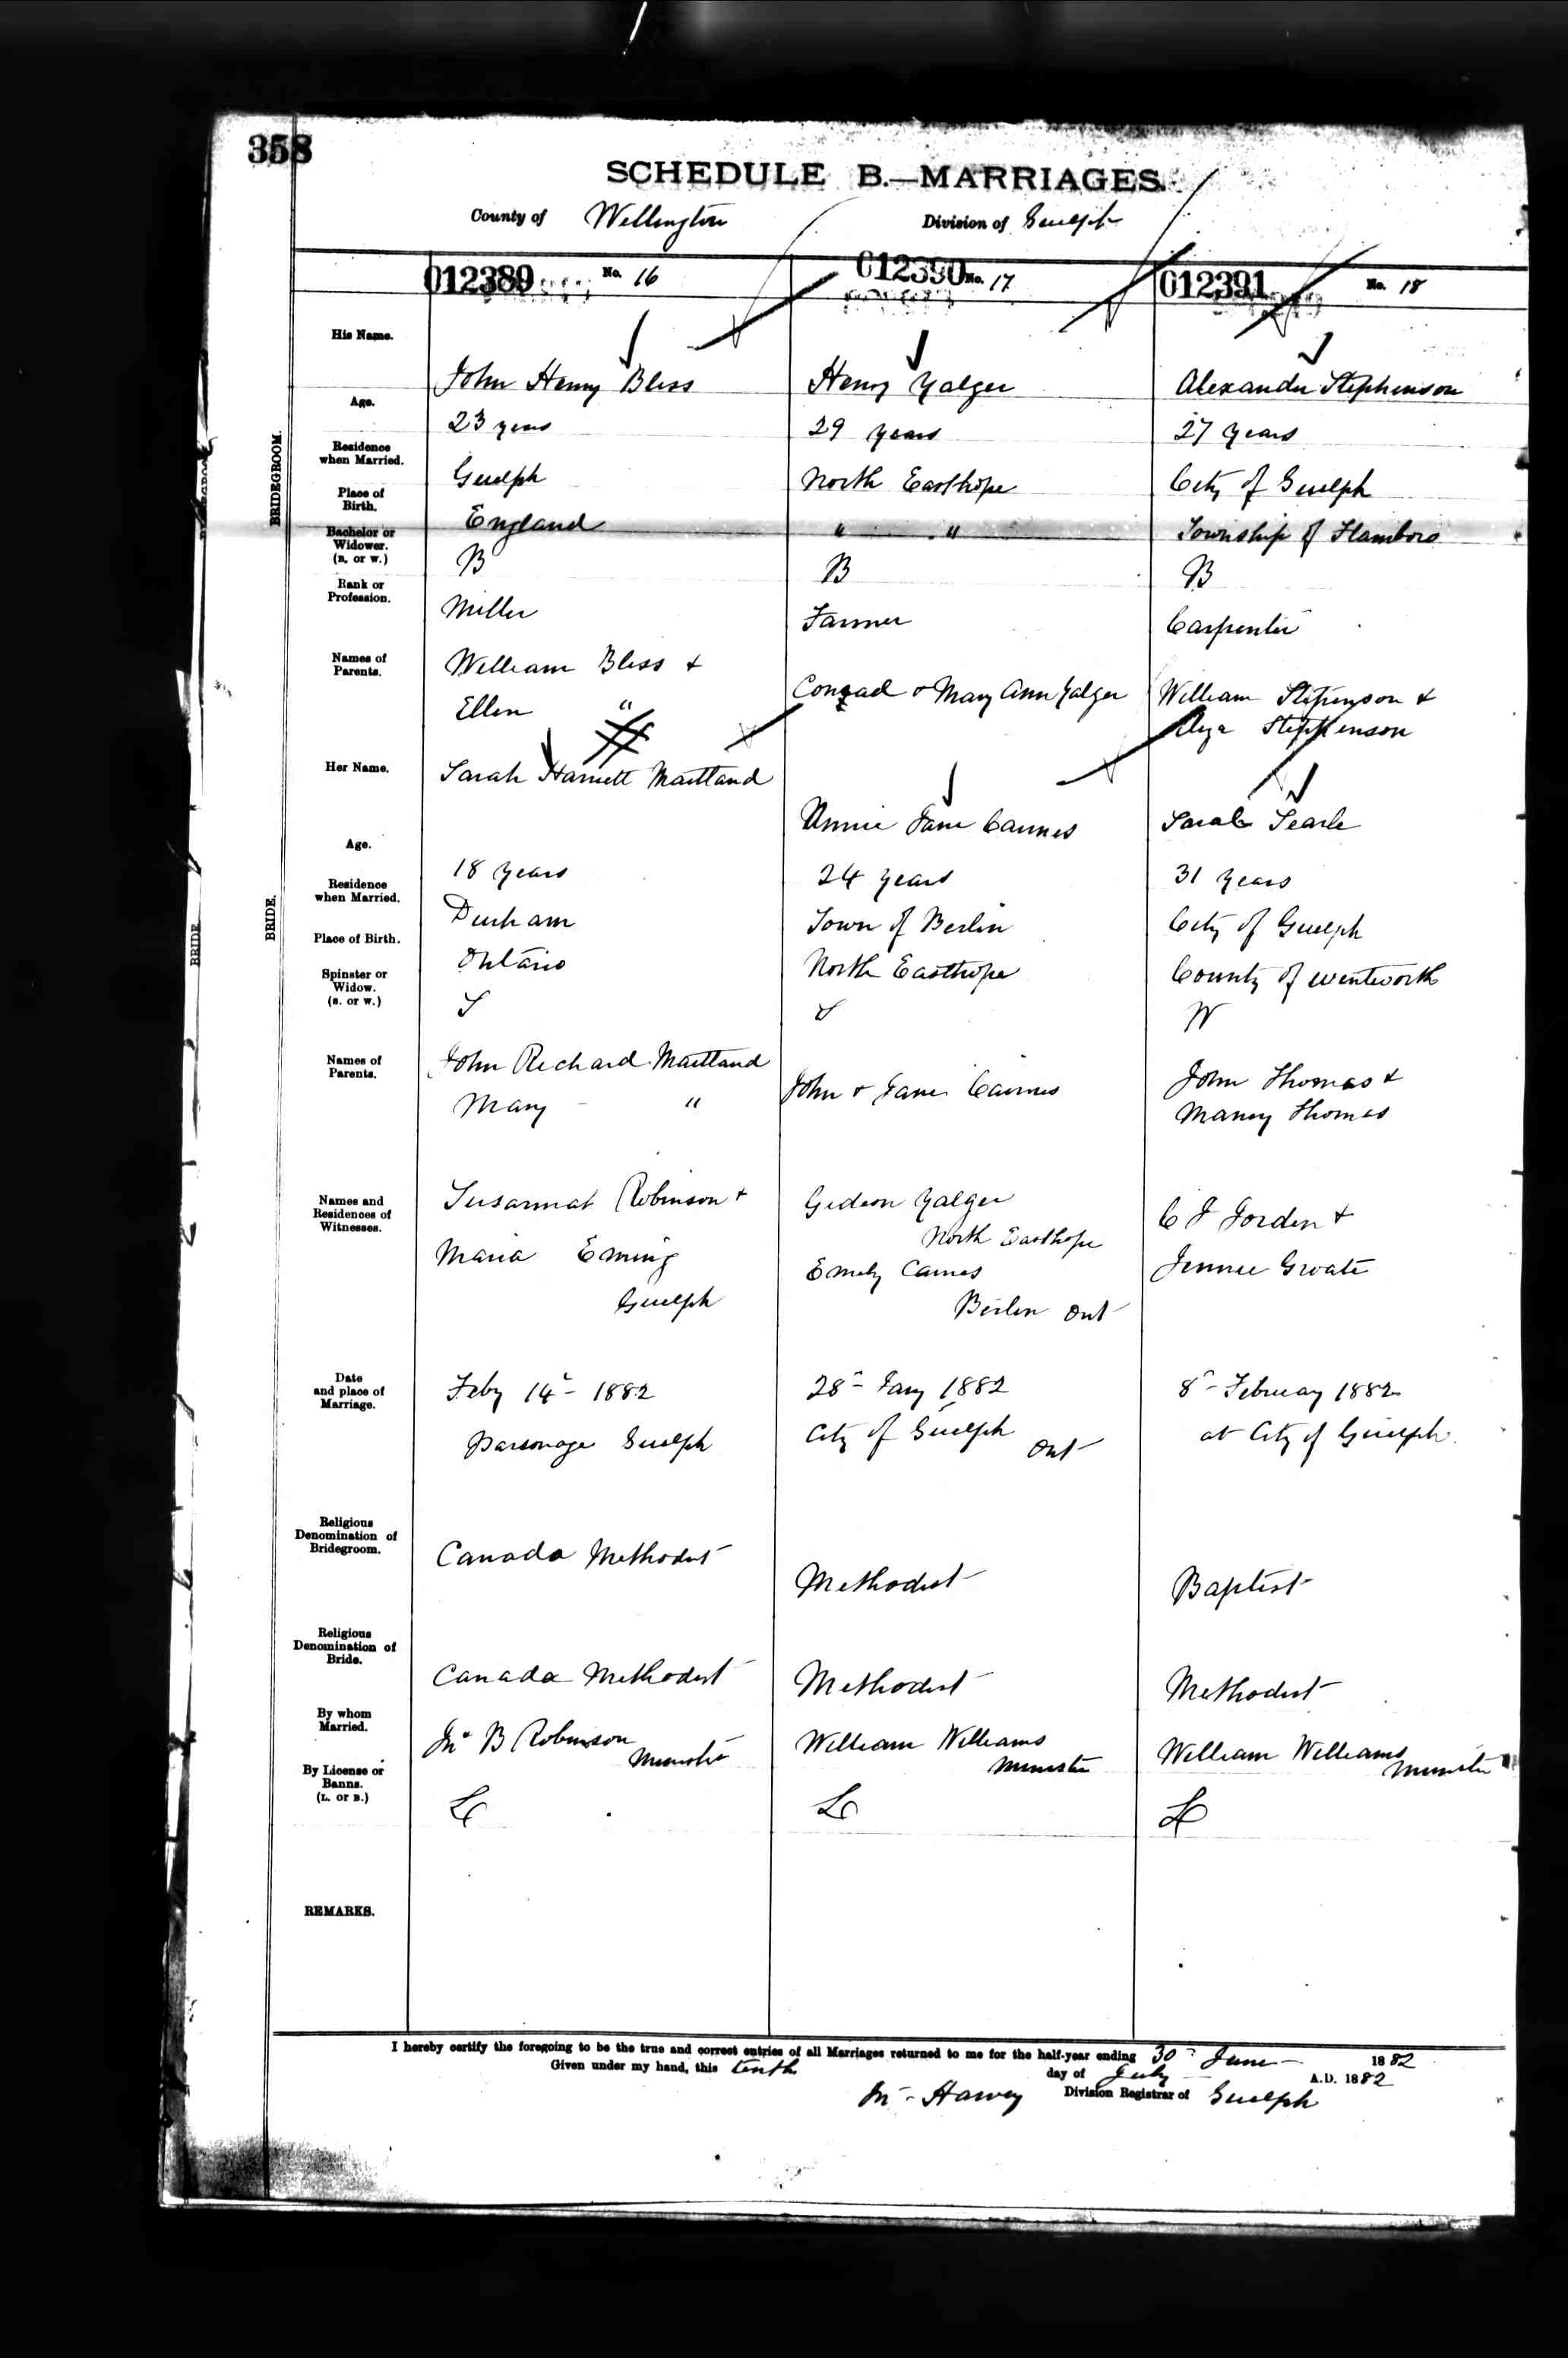 358
SCHEDULE B.—MARRIAGES.
County of Wellington Division of Guelph
012389 No. 16
012390 No. 17
012391 No. 18
BRIDEGROOM.
His Name.
John Henry Bliss
Henry Yalger
Alexander Stephenson
Age.
23 years
29 years
27 years
Residence when Married.
Guelph
North Easthope
City of Guelph
Place of Birth.
England
" "
Township of Flamboro
Bachelor or Widower. (B. or W.)
B
B
B
Rank or Profession.
Miller
Farmer
Carpenter
Names of Parents.
William Bliss &
Ellen "
Conrad & Mary Ann Yalger
William Stephenson &
Stephenson
BRIDE.
BRIDE
Her Name.
Sarah Harriett Maitland
Annie Jane Cairnes
Sarah Searle
Age.
18 years
24 years
31 years
Residence when Married.
Durham
Town of Berlin
City of Guelph
Place of Birth.
Ontario
North Easthope
County of Wentworth
Spinster or Widow. (S. or W.)
S
S
W
Names of Parents.
John Richard Maitland
Mary "
John & Jane Cairnes
John Thomas &
Thomas
Names and Residences of Witnesses.
Susannah Robinson &
Maria
Guelph
Gideon Yalger
North Easthope
Emely Cairnes
Berlin Ont
C J Jorden &
Jennie
Date and place of Marriage.
Feby 14th 1882
Parsonage Guelph
28th Jany 1882
City of Guelph Ont
8th February 1882
at City of Guelph.
Religious Denomination of Bridegroom.
Canada Methodist
Methodist
Baptist
Religious Denomination of Bride.
Canada Methodist
Methodist
Methodist
By whom Married.
Jno B Robinson
Minister
William Williams
Minister
William Williams
Minister
By License or Banns. (L. or B.)
L
L
L
REMARKS.
I hereby certify the foregoing to be the true and correct entries of all Marriages returned to me for the half-year ending 30th June 1882
Given under my hand, this tenth day of July A.D. 1882
Harvey Division Registrar of Guelph